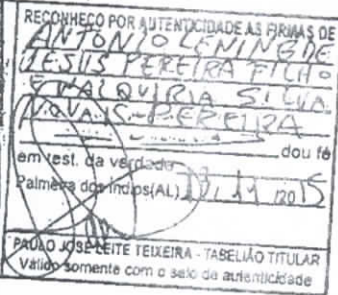 RECONHEÇO POR AUTENTICIDADE AS FIRMAS DE
ANTONIO LENING DE
JESUS PEREIRA FILHO
E VALQUIRIA SILVA
NOVAIS PEREIRA
dou fé
em test. da verdade
Palmeira dos Índios(AL) 11 2015
PAULO JOSÉ LEITE TEIXEIRA - TABELIÃO TITULAR
Válido somente com o selo de autenticidade